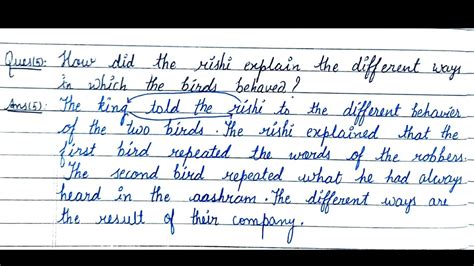 Ques(5): How did the rishi explain the different ways
in which the birds behaved?
Ans(5): The king told the rishi to the different behavier
of the two birds. The rishi explained that the
first bird repeated the words of the robbers.
The second bird repeated what he had always
heard in the aashram. The different ways are
the result of their company.